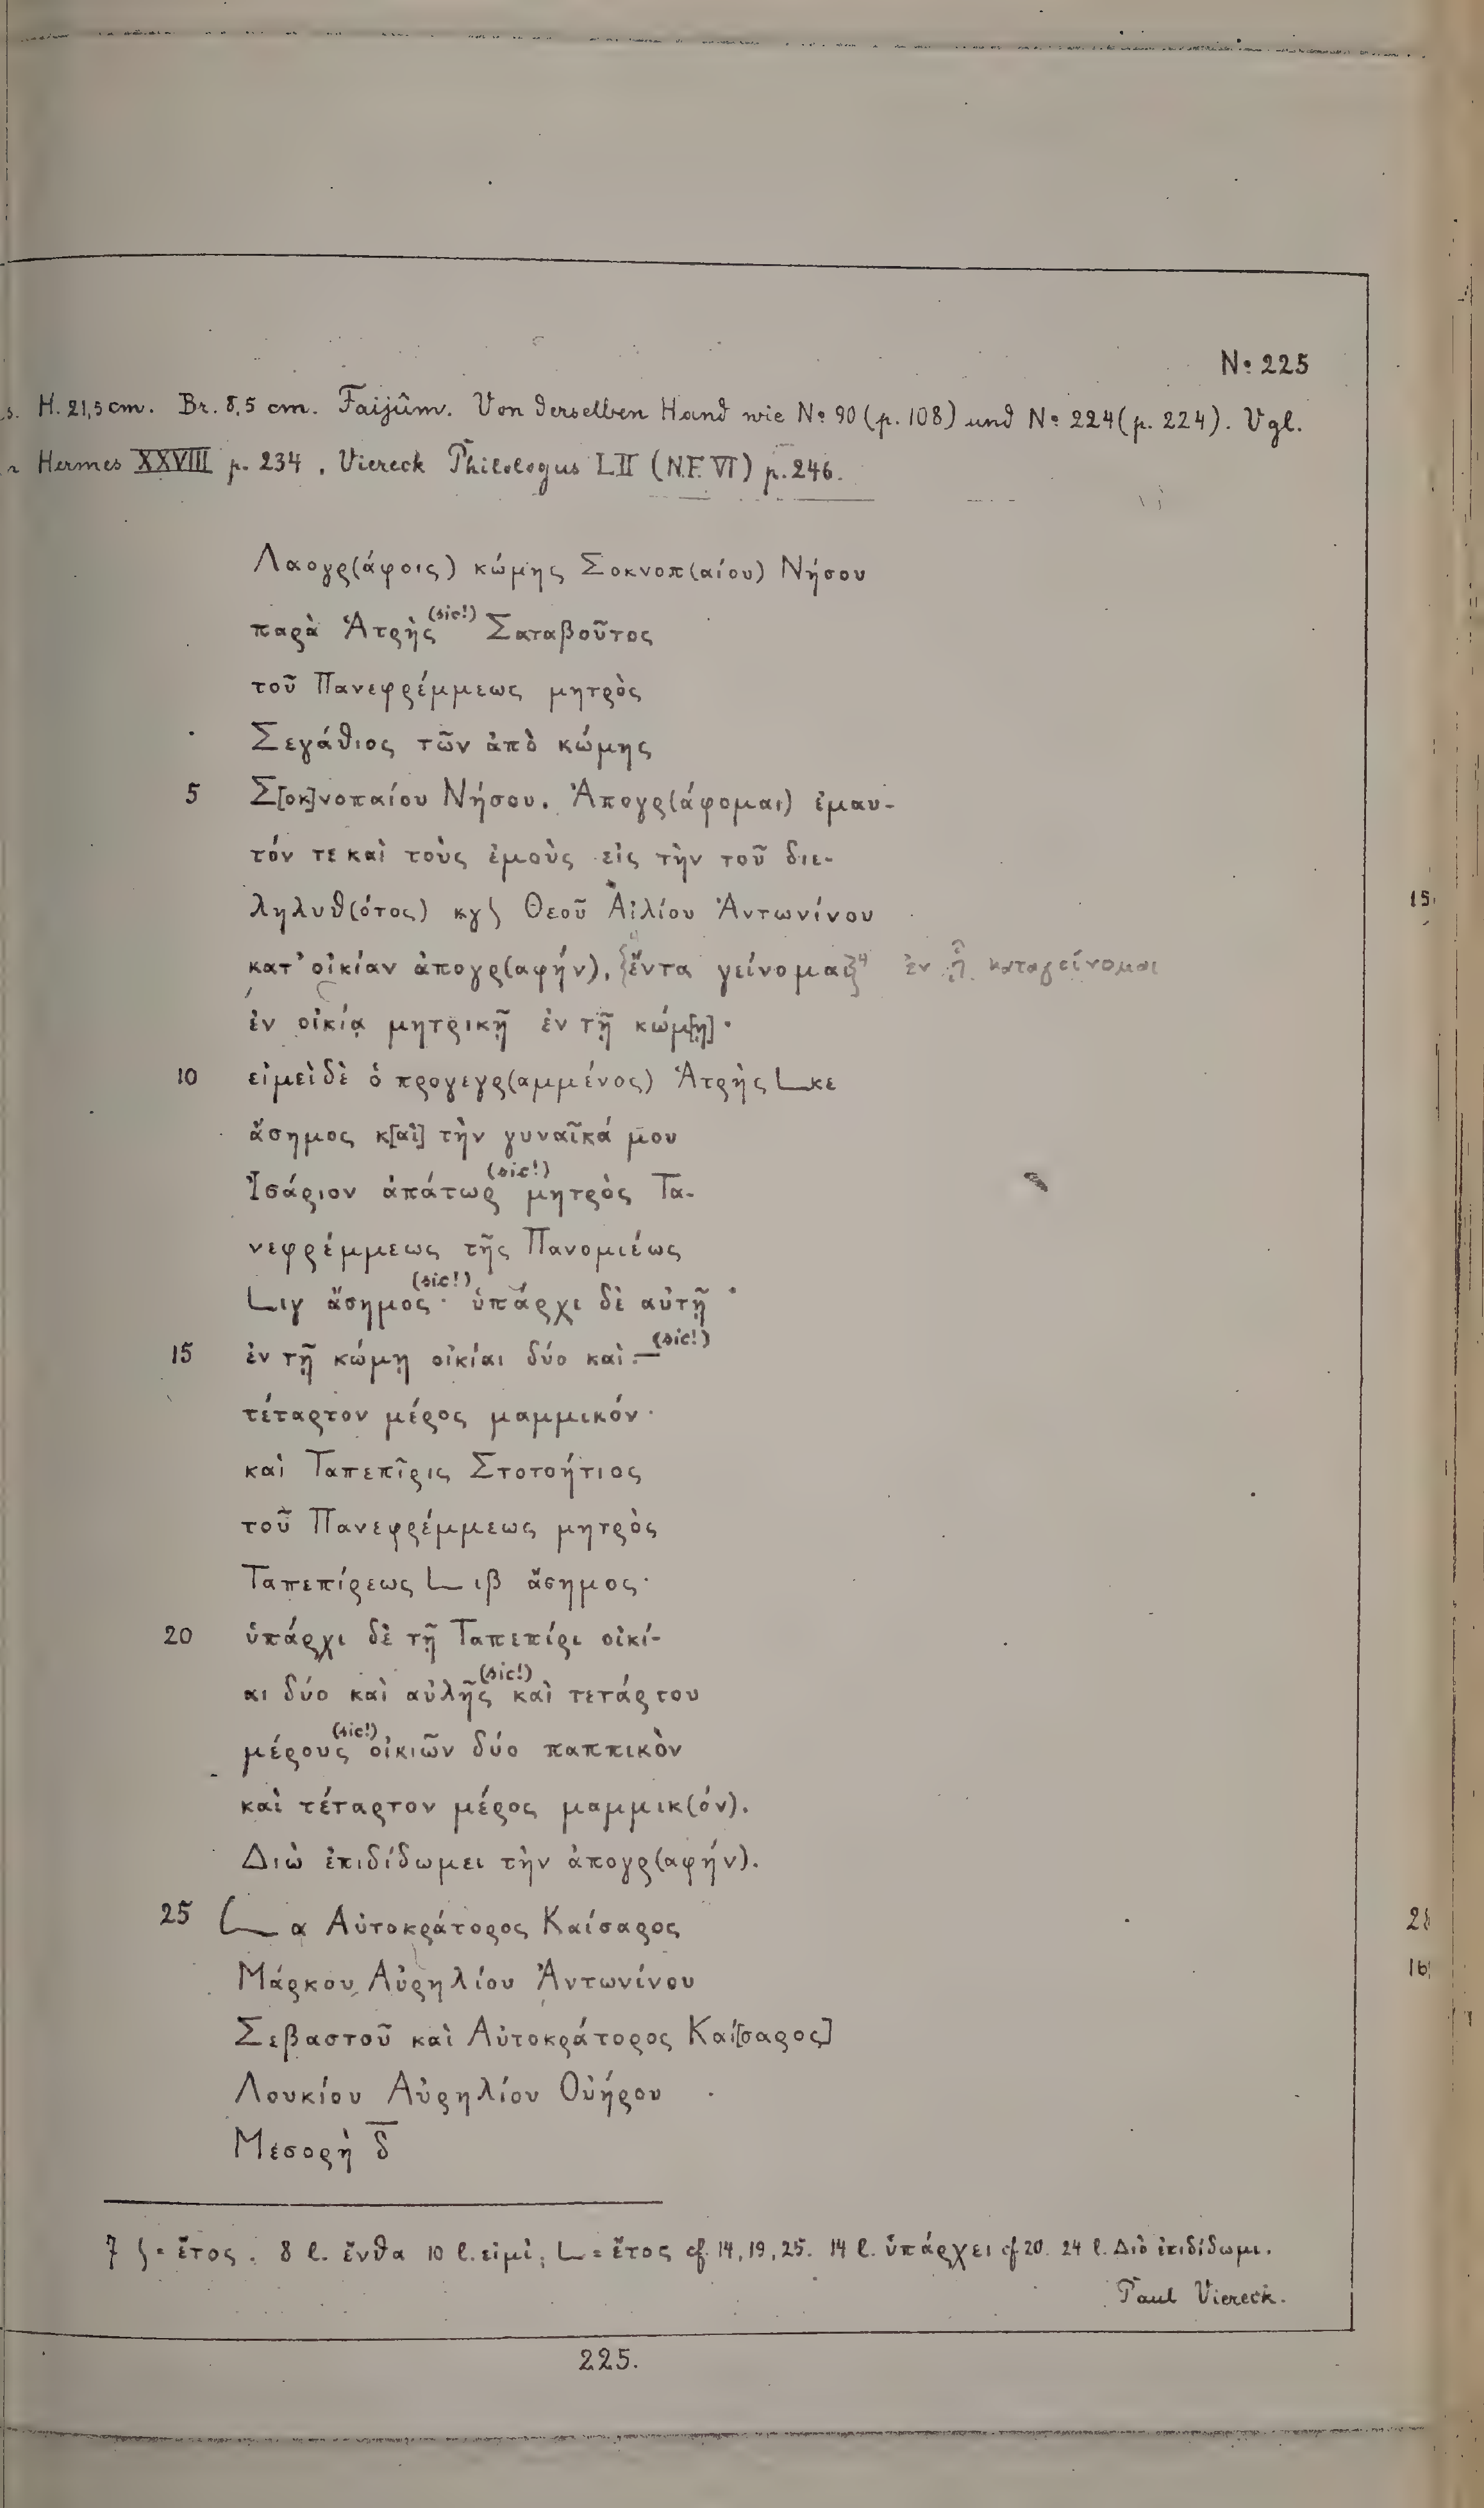 No 225
H. 21,5 cm. Br. 8,5 cm. Faijûm. Von derselben Hand wie No 90 (p. 108) und No 224 (p. 224). Vgl.
Hermes XXVIII p. 234, Viereck Philologus LII (N.F. VI) p. 246.
Λαογρ(άφοις) κώμης Σοκνοπ(αίου) Νήσου
παρὰ Ἁτρὴς (sic!) Σαταβοῦτος
τοῦ Πανεφρέμμεως μητρὸς
Σεγάθιος τῶν ἀπὸ κώμης
5 Σ[οκ]νοπαίου Νήσου. Ἀπογρ(άφομαι) ἐμαυ-
τόν τε καὶ τοὺς ἐμοὺς εἰς τὴν τοῦ διε-
ληλυθ(ότος) κγ⟆ Θεοῦ Αἰλίου Ἀντωνίνου 15
κατ' οἰκίαν ἀπογρ(αφήν), {ἔντα γείνομαι} ἐν ᾗ καταγείνομαι
ἐν οἰκίᾳ μητρικῇ ἐν τῇ κώμ[ῃ]·
10 εἰμεὶ δὲ ὁ προγεγρ(αμμένος) Ἁτρὴς 𐅹κε
ἄσημος κ[αὶ] τὴν γυναῖκά μου
Ἰσάριον ἀπάτωρ (sic!) μητρὸς Τα-
νεφρέμμεως τῆς Πανομιέως
𐅹ιγ ἄσημος (sic!)· ὑπάρχι δὲ αὐτῇ
15 ἐν τῇ κώμῃ οἰκίαι δύο καὶ — (sic!)
τέταρτον μέρος μαμμικόν·
καὶ Ταπεπῖρις Στοτοήτιος
τοῦ Πανεφρέμμεως μητρὸς
Ταπεπίρεως 𐅹ιβ ἄσημος·
20 ὑπάρχι δὲ τῇ Ταπεπίρι οἰκί-
αι δύο καὶ αὐλῆς (sic!) καὶ τετάρτου
μέρους (sic!) οἰκιῶν δύο παππικὸν
καὶ τέταρτον μέρος μαμμικ(όν).
Διὼ ἐπιδίδωμει τὴν ἀπογρ(αφήν).
25 𐅹α Αὐτοκράτορος Καίσαρος
Μάρκου Αὐρηλίου Ἀντωνίνου 16
Σεβαστοῦ καὶ Αὐτοκράτορος Καί[σαρος]
Λουκίου Αὐρηλίου Οὐήρου
Μεσορὴ δ̅
7 ⟆ = ἔτος. 8 l. ἔνθα 10 l. εἰμὶ; 𐅹 = ἔτος cf. 14, 19, 25. 14 l. ὑπάρχει cf 20. 24 l. Διὸ ἐπιδίδωμι.
Paul Viereck.
225.